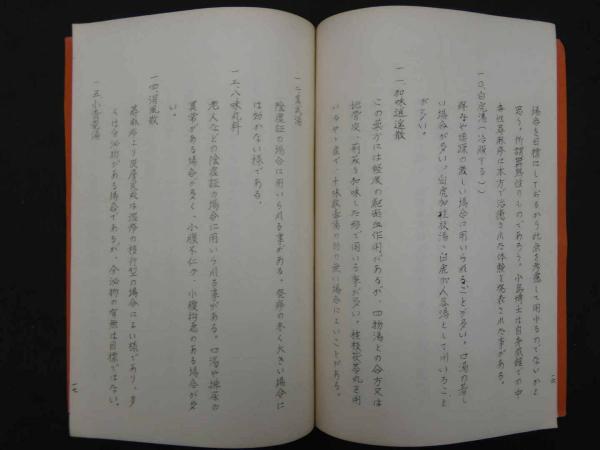 場合を目標にしておるから此点を考慮して用ゆるのでないかと
思う。所謂
であろう。小島博士は自身感経での中
毒性蕁麻疹に本方で治癒された体験を発表された事がある。
一〇、白虎湯(冷服する)
痒みや煩躁の激しい場合に用いられることが多い。口渇の著し
い場合が多い。白虎加桂枝湯、白虎加人参湯として用いること
が多い。
一一、加味逍遥散
この薬方には軽度の駆瘀血作用があるが、四物湯との合方又は
地骨皮、荊芥を加味した形で用いる事が多い。桂枝茯苓丸を用
十味敗毒湯の効の無い場合によいことがある。
一六
一二、真武湯
陰虚証の場合に用いられる事がある。発疹の赤く大きい場合に
は効かない様である。
一三、八味丸料
老人などの陰虚証の場合に用いられる事がある。口渇や排尿の
異常がある場合が多く、小腹不仁や、小腹拘急のある場合が多
い。
一四、消風散
蕁麻疹より皮膚炎或は湿疹の移行型の場合によい様であり、多
くは分泌物がある場合であるが、分泌物の有無は目標ではない。
一五、小青竜湯
一七